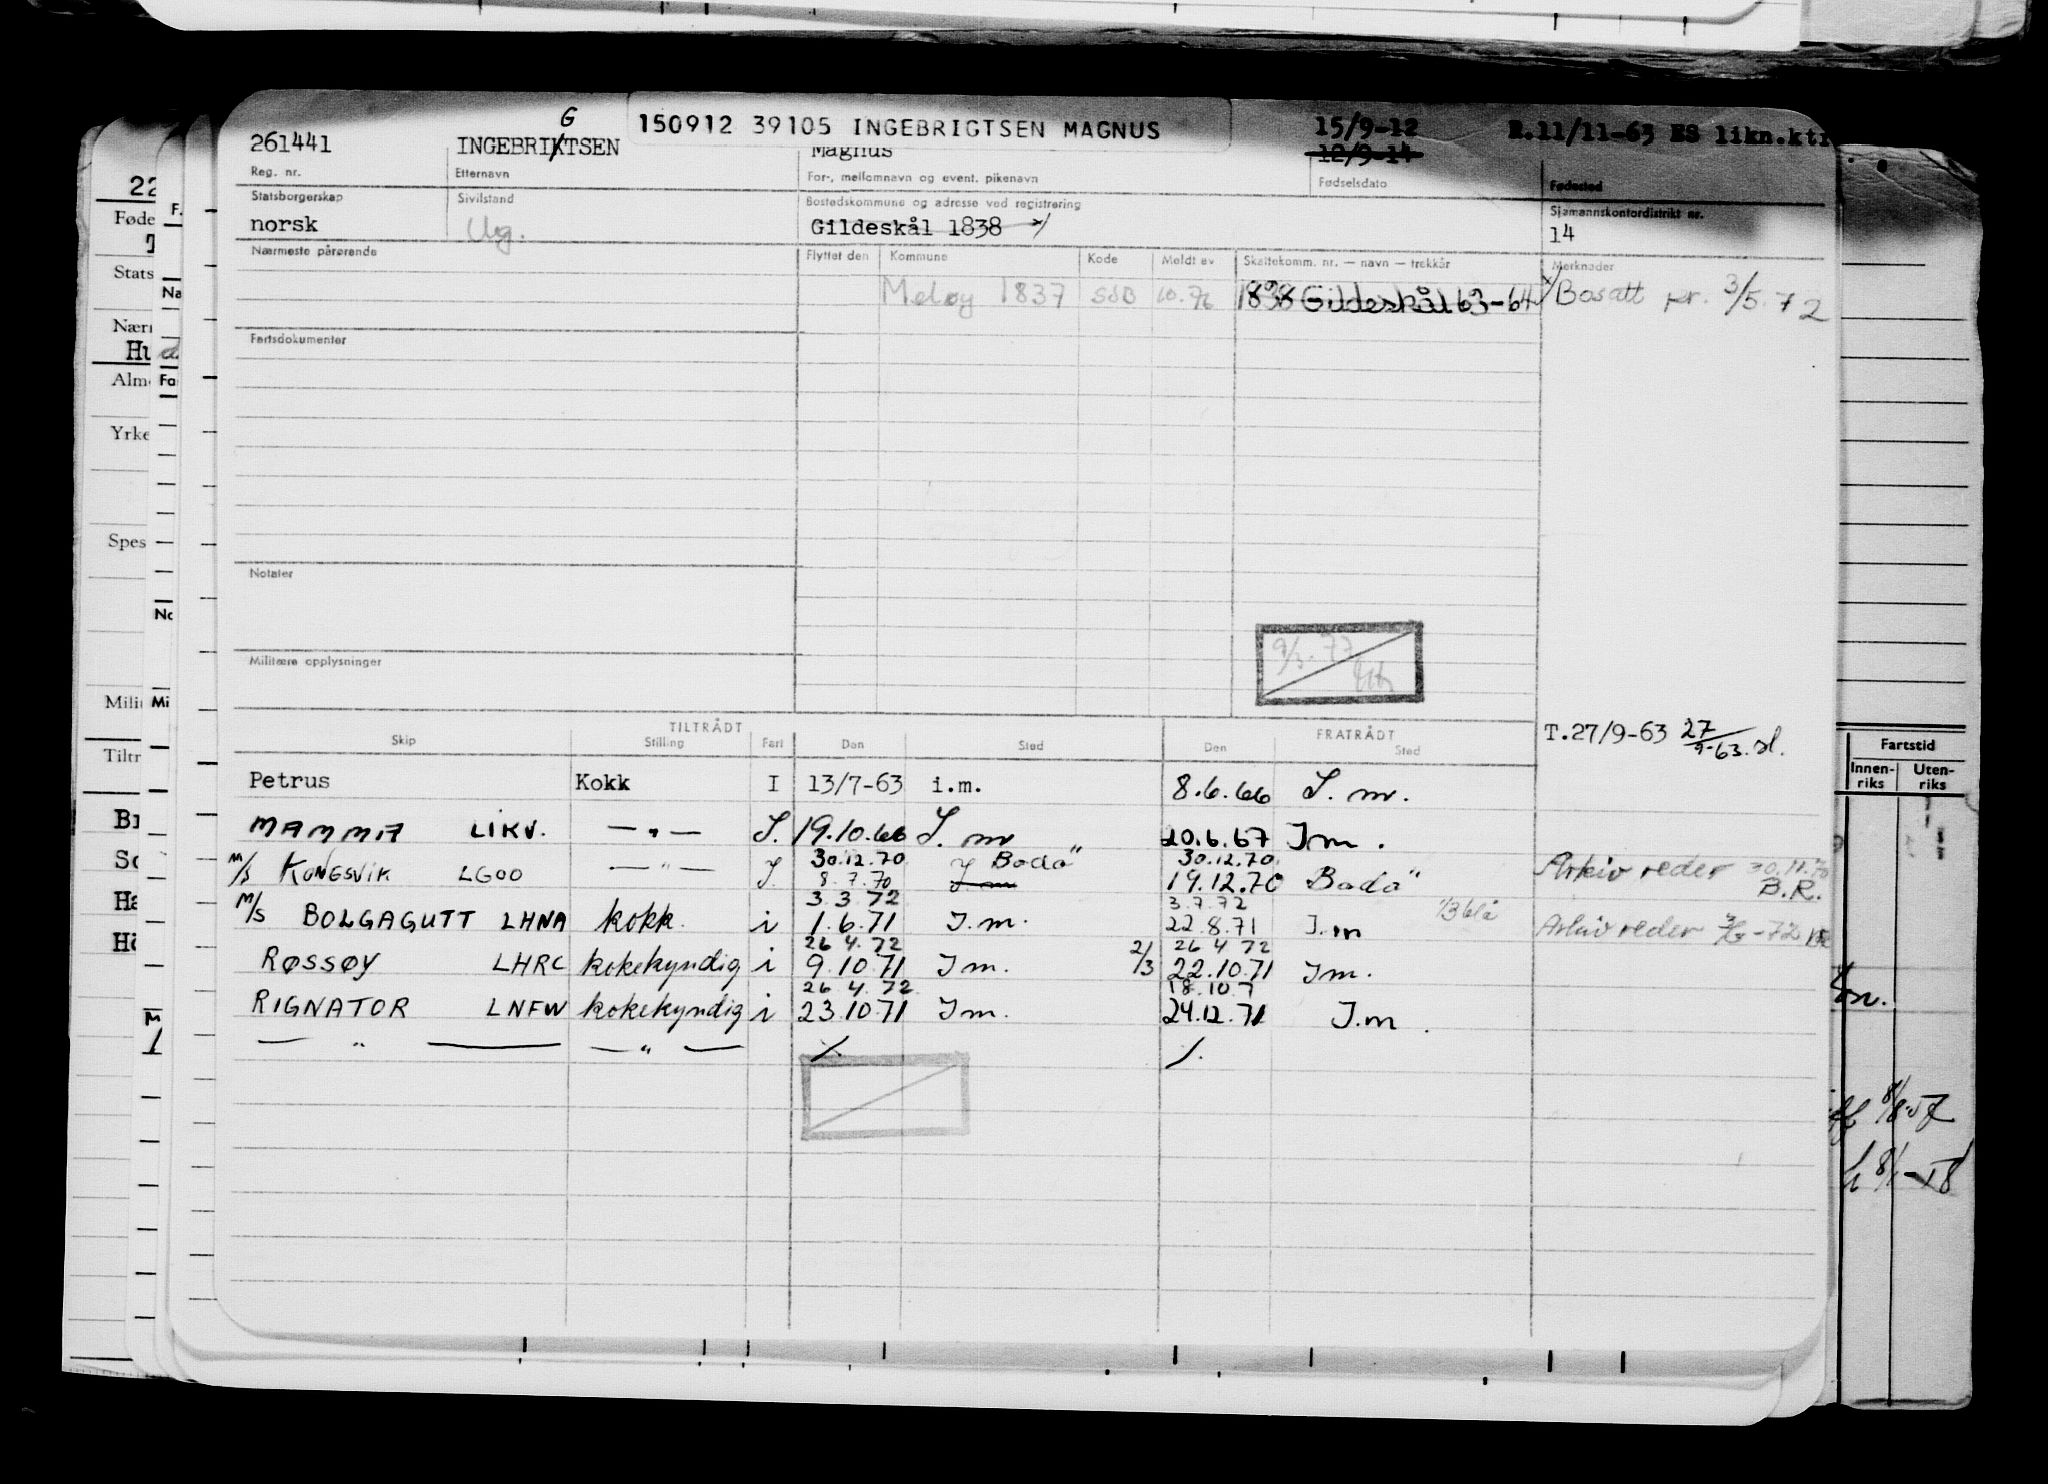 G
150912 39105 INGEBRIGTSEN MAGNUS
15/9-12
R.11/11-63 ES likn.ktr
261441 INGEBRIKTSEN Magnus 12/9-14
Reg. nr. Etternavn For-, mellomnavn og event. pikenavn Fødselsdato Fødested
Statsborgerskap Sivilstand Bostedskommune og adresse ved registrering Sjømannskontordistrikt nr.
norsk Ug. Gildeskål 1838 x/ 14
Nærmeste pårørende Flyttet den Kommune Kode Meldt av Skattekomm. nr. — navn — trekkår Merknader
Meløy 1837 SSB 10.76 1838 Gildeskål 63-64 x/ Bosatt pr. 3/5.72
Fartsdokumenter
Notater
9/3.77
Militære opplysninger
TILTRÅDT FRATRÅDT T.27/9-63 27/9-63.
Skip Stilling Fart Den Sted Den Sted
Petrus Kokk I 13/7-63 i.m. 8.6.66 I.m.
MAMMA LIKV. — " — I. 19.10.66 I.m 20.6.67 I m.
30.12.70 Bodø 30.12.70
M/S KONGSVIK LGOO — " — I. 8.7.70 I m 19.12.70 Bodø Arkiv reder 30.11.70 B.R.
3.3.72 3.7.72
M/S BOLGAGUTT LHNA kokk. i 1.6.71 I.m. 22.8.71 I.m Arkiv reder
26 4.72 2/3 26 4 72
RØSSØY LHRC kokekyndig i 9.10.71 I m. 22.10.71 I m.
26 4.72 18.10.7
RIGNATOR LNFW kokekyndig i 23.10.71 I m. 24.12.71 I.m.
— " — — " — /. /.
22
Føde
Stats
Na
Nærr
Hu
Alm
Fa
Yrke
Spes
No
Mili
Mi
Tiltr
Ha
M
1
Fartstid
Innen- Uten-
riks riks
8/8-57
8/1-58